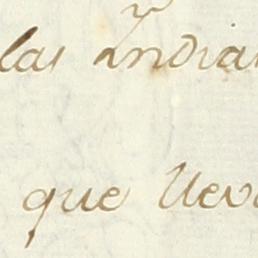 las Yndia
que lleva